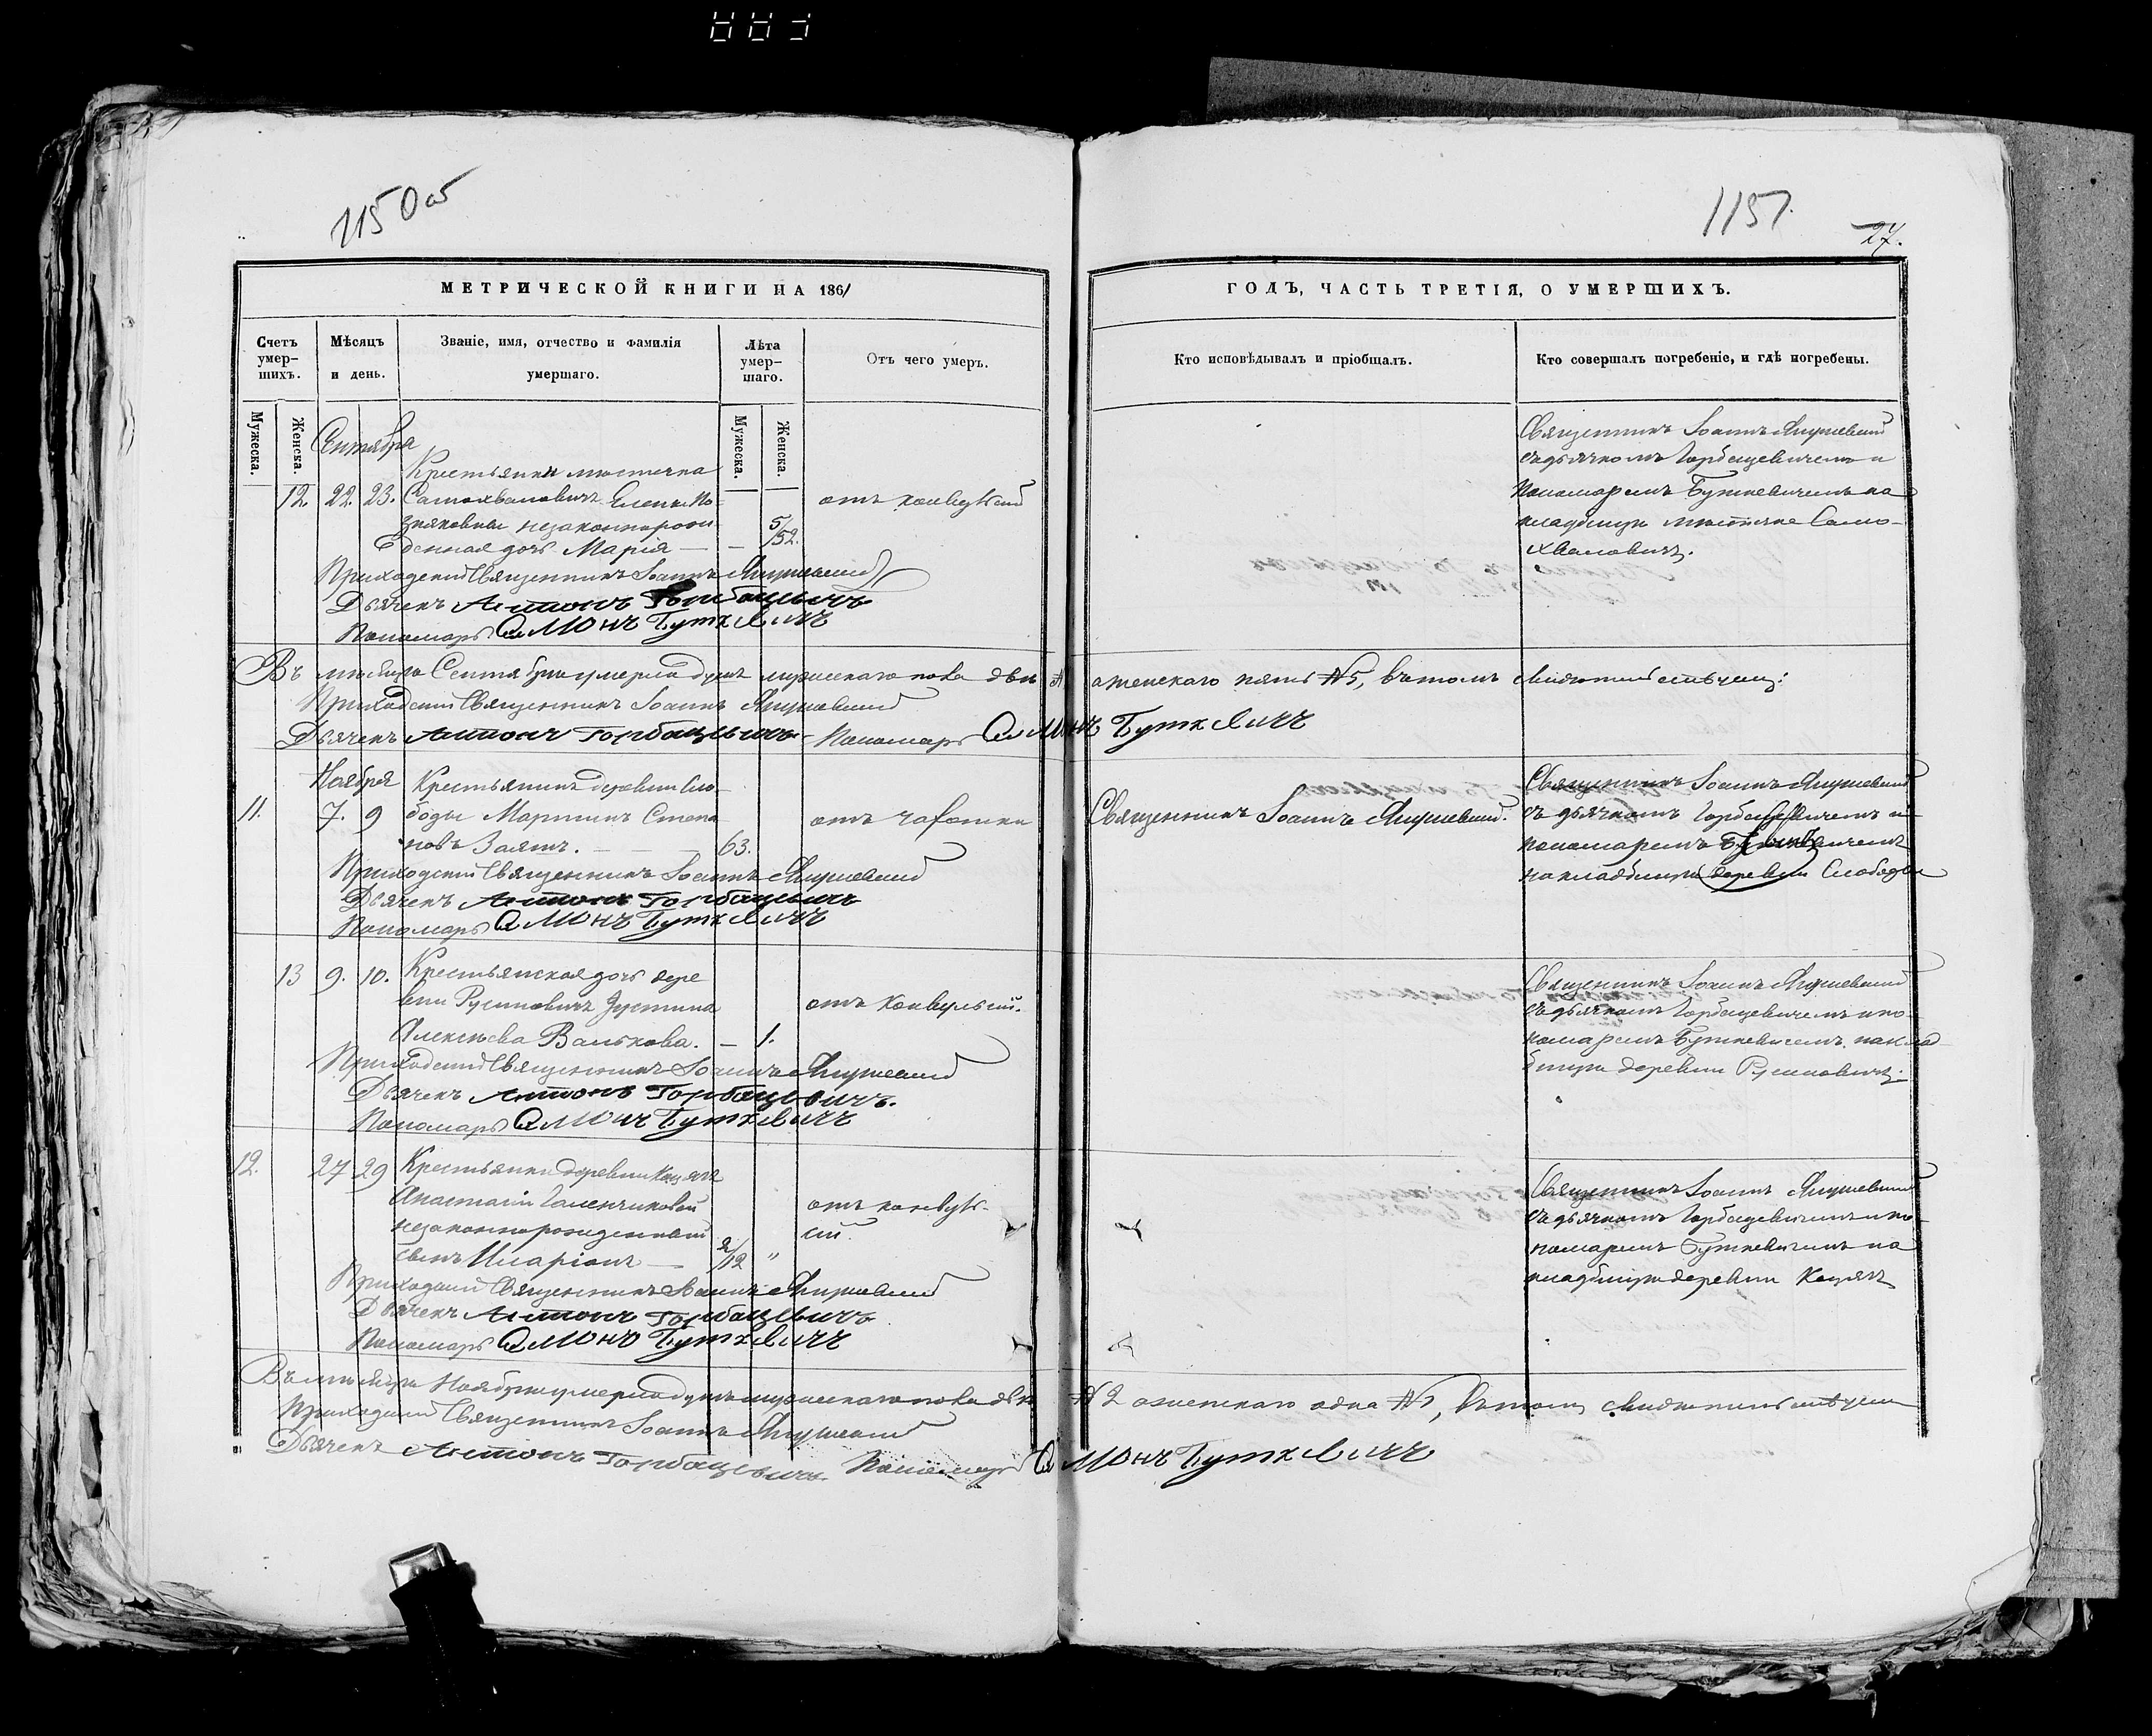 1150 об
1151.
27.
МЕТРИЧЕСКОЙ КНИГИ НА 1861
ГОДЪ, ЧАСТЬ ТРЕТІЯ, О УМЕРШИХЪ.
Счетъ умер-шихъ.
Мѣсяцъ и день.
Званіе, имя, отчество и фамилія умершаго.
Лѣта умер-шаго.
Отъ чего умеръ.
Кто исповѣдывалъ и пріобщалъ.
Кто совершалъ погребеніе, и гдѣ погребены.
Мужеска.
Женска.
Мужеска.
Женска.
Сентября
Крестьянки мѣстечка
12. 22. 23. Самохваловичъ Елены По-
незаконнорож
5/52.
денная дочь Марія
отъ конвульсій
Священникъ Іоаннъ
съ дьячкомъ Горбацевичемъ и
пономаремъ Буткевичемъ на
кладбищѣ мѣстечка Само-
хваловичъ.
Приходскій Священникъ Іоаннъ
Дьячекъ Антонъ Горбацевичъ
Пономарь Симонъ Буткевичъ
Въ мѣсяцѣ Сентябрѣ умерло душъ мужескаго пола двѣ
а женскаго пять №5, въ томъ свидѣтельствуемъ:
Приходскій Священникъ Іоаннъ
Дьячекъ Антонъ Горбацевичъ Пономарь Симонъ Буткевичъ
Ноября
11. 7. 9
Крестьянинъ деревни Сло-
боды Мартинъ Степа
новъ Заяцъ. 63.
отъ чахотки
Священникъ Іоаннъ
Священникъ Іоаннъ
съ дьячкомъ Горбацевичемъ и
пономаремъ Буткевичемъ
на кладбищѣ деревни Слободы
Приходскій Священникъ Іоаннъ
Дьячекъ Антонъ Горбацевичъ
Пономарь Симонъ Буткевичъ
13 9. 10. Крестьянская дочь дере
вни Русиновичъ Іустина
Алексѣева Валькова. 1.
отъ конвульсій.
Священникъ Іоаннъ
съ дьячкомъ Горбацевичемъ и по-
номаремъ Буткевичемъ на клад
бищѣ деревни Русиновичъ.
Приходскій Священникъ Іоаннъ
Дьячекъ Антонъ Горбацевичъ.
Пономарь Симонъ Буткевичъ
12. 27 29 Крестьянки деревни
Анастасіи
незаконнорожденный
сынъ Иларіонъ 2/12 "
отъ конвуль-
сій.
Священникъ Іоаннъ
съ дьячкомъ Горбацевичемъ и по-
номаремъ Буткевичемъ на
кладбищѣ деревни
Приходскій Священникъ Іоаннъ
Дьячекъ Антонъ Горбацевичъ
Пономарь Симонъ Буткевичъ
Въ мѣсяцѣ Ноябрѣ умерло душъ мужескаго пола двѣ
№2 а женскаго одна №1, въ томъ свидѣтельствуемъ
Приходскій Священникъ Іоаннъ
Дьячекъ Антонъ Горбацевичъ Пономарь Симонъ Буткевичъ